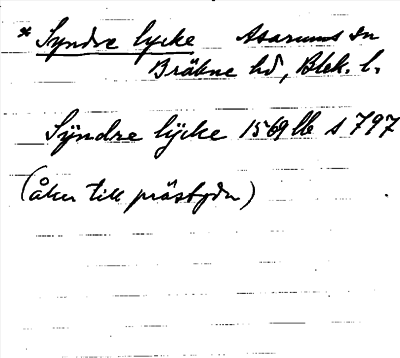 * Syndre lycke Asarums sn
Bräkne hd, Blek. l.
Syndre lycke 1569 lb s 797
(åker till prästgdn)